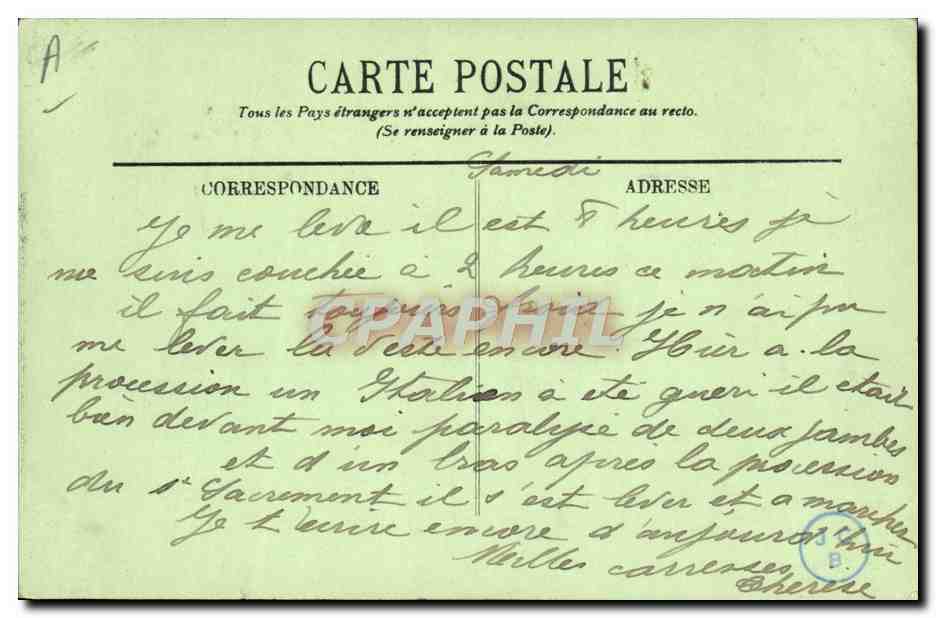 A
CARTE POSTALE
Tous les Pays étrangers n'acceptent pas la Correspondance au recto.
(Se renseigner à la Poste).
Samedi
CORRESPONDANCE
ADRESSE
Je me leve il est 8 heures je
me suis couchée à 2 heures ce matin
il fait toujours je n'ai pu
me lever la veste encore. Hier a la
procession un Italien à eté gueri il etait
bien devant moi paralysé de deux jambes
et d'un bras après la procession
du St Sacrement il s'est lever et a marcher
Je t'ecrire encore d'aujourd'hui
Meilles carresses
Therese
CPAPHIL
J C
B